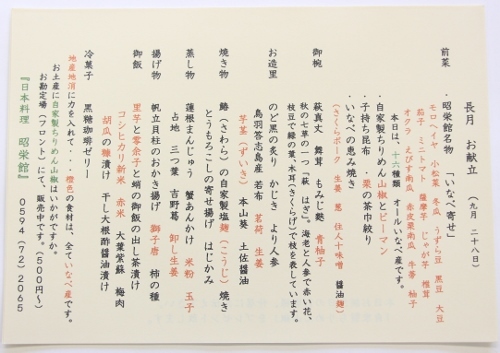 長月　お献立　（九月　二十八日）
前菜　・昭栄館名物　「いなべ寄せ」
モロヘイヤ　小松菜　冬瓜　うずら豆　黒豆　大豆
茄子　ミニトマト　薩摩芋　じゃが芋　椎茸
オクラ　えびす南瓜　赤皮栗南瓜　牛蒡　柚子
本日は、十六種類　オールいなべ産です。
・自家製ちりめん山椒とピーマン
・子持ち昆布　・栗の茶巾絞り
・いなべの恵み焼き
（さくらポーク　生姜　葱　住人十味噌　醤油麹）
御椀　萩真丈　舞茸　もみじ麩　青柚子
秋の七草の一つ「萩　はぎ」。海老と人参で赤い花、
枝豆で緑の葉、木耳（きくらげ）で枝を表しています。
お造里　のど黒の炙り　かじき　より人参
鳥羽答志島産　若布　茗荷　生姜
芋茎（ずいき）　本山葵　土佐醤油
焼き物　鰆（さわら）の自家製塩麹（こうじ）焼き
とうもろこしの寄せ揚げ　はじかみ
蒸し物　蓮根まんじゅう　蟹あんかけ　米粉　玉子
占地　三つ葉　吉野葛　卸し生姜
揚げ物　帆立貝柱のおかき揚げ　獅子唐　柿の種
御飯　里芋と零余子と蛸の御飯の出し茶漬け
コシヒカリ新米　赤米　大葉紫蘇　梅肉
胡瓜の糠漬け　干し大根酢醤油漬け
冷菓子　黒糖珈琲ゼリー
地産地消に力を入れて・・橙色の食材は、全ていなべ産です。
お土産に自家製ちりめん山椒はいかがですか。
お勘定場（フロント）にて、販売中です。（５００円〜）
『日本料理　昭栄館』　０５９４（７２）２０６５